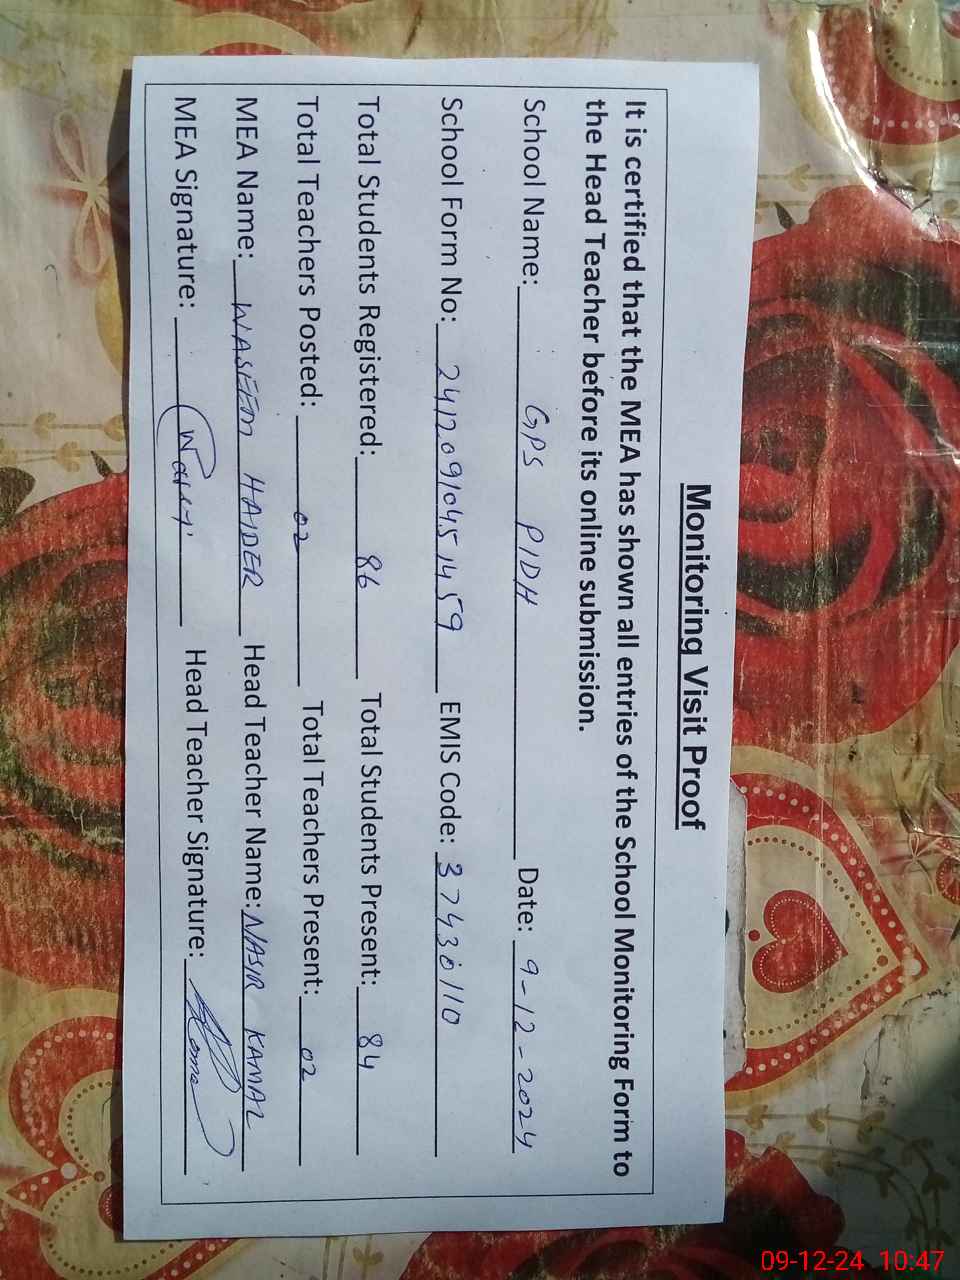 Monitoring Visit Proof
It is certified that the MEA has shown all entries of the School Monitoring Form to
the Head Teacher before its online submission.
School Name: GPS PIDH Date: 9-12-2024
School Form No: EMIS Code: 37430110
Total Students Registered: 86 Total Students Present: 84
Total Teachers Posted: 02 Total Teachers Present: 02
MEA Name: WASEEM HAIDER Head Teacher Name: NASIR KAMAL
MEA Signature: Head Teacher Signature:
09-12-24 10:47